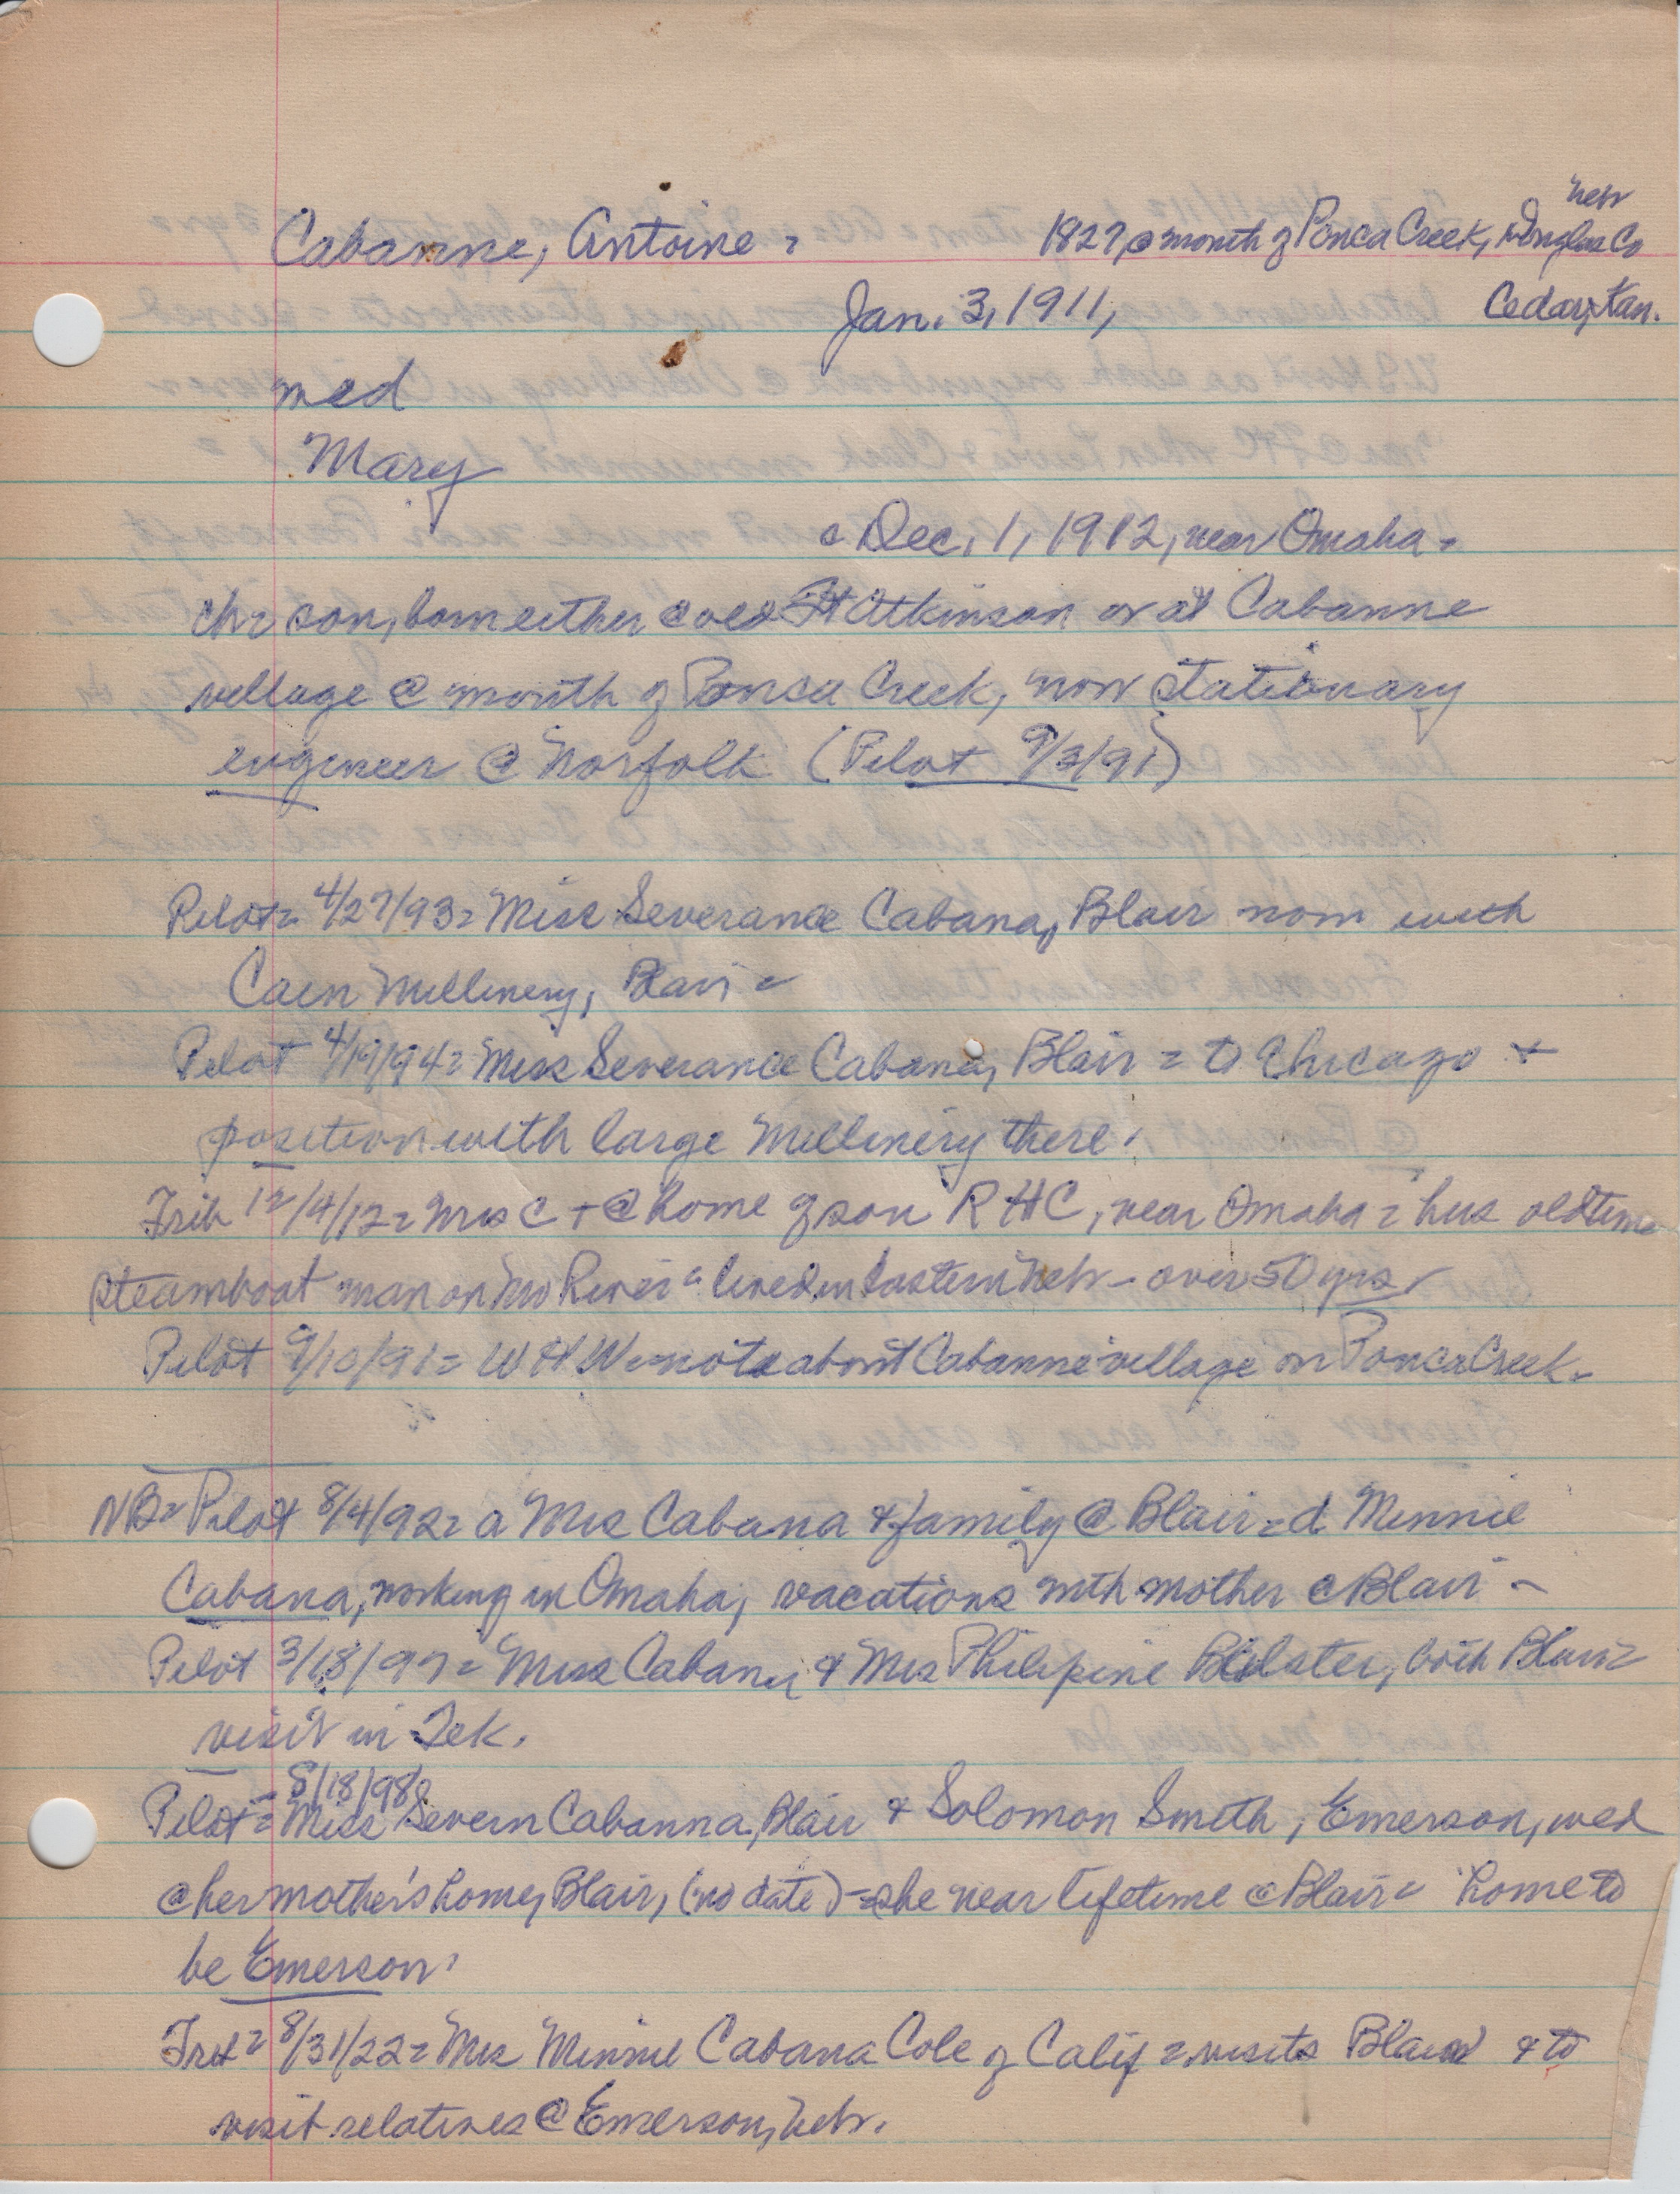 Neb
Cabanne, Antoine = 1827, @ mouth of Ponca Creek, Douglas Co
Jan. 3, 1911, Cedar, Kan.
med
Mary
Dec. 1, 1912, near Omaha =
ch = son, born either @ old Ft Atkinson or at Cabanne
village @ mouth of Ponca Creek, now stationary
engineer @ Norfolk (Pilot 9/3/91)
Pilot = 4/27/93 = Miss Severance Cabana, Blair now with
Cain Millinery, Blair =
Pilot 4/19/94 = Miss Severance Cabana, Blair = to Chicago &
position with large Millinery there.
Trib 12/4/12 = Mrs C + @ home of son R H C, near Omaha = hus oldtime
steamboat man on Mo River = lived in Eastern Neb - over 50 yrs
Pilot 9/10/91 = W H W = note about Cabanne village on Ponca Creek =
NB = Pilot 8/4/92 = a Mrs Cabana & family @ Blair = d Minnie
Cabana, working in Omaha, vacations with mother @ Blair -
Pilot 3/18/97 = Miss Cabana & Mrs Philipine both Blair =
visit in Tek.
8/18/98
Pilot = Miss Severn Cabanna, Blair & Solomon Smith, Emerson, wed
@ her mother's home, Blair, (no date) = she near lifetime @ Blair = home to
be Emerson.
Trib = 8/31/22 = Mrs Minnie Cabana Cole of Calif = visits Blair & to
visit relatives @ Emerson, Neb.